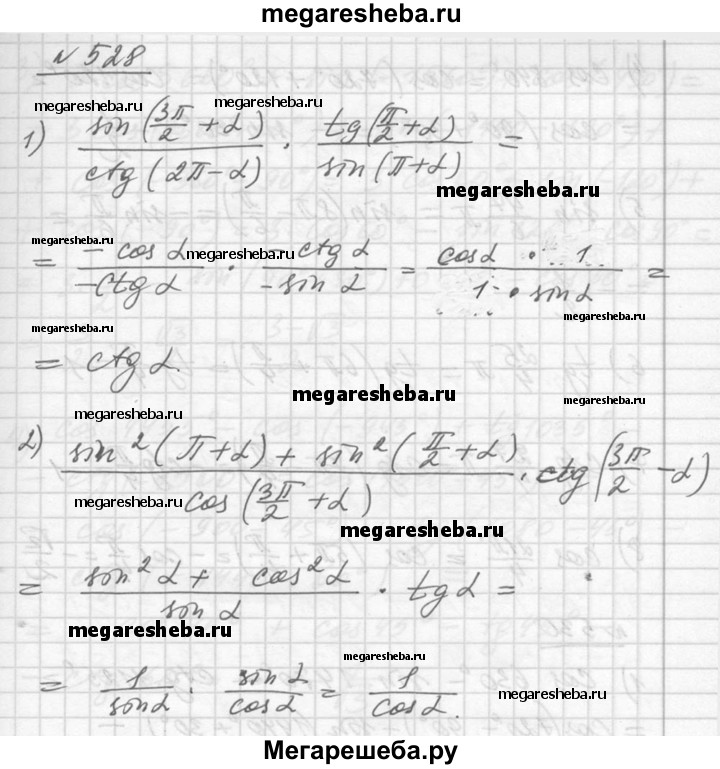 megaresheba.ru
N 528
megaresheba.ru megaresheba.ru
1) sin(3π/2 + α) / ctg(2π - α) · tg(π/2 + α) / sin(π + α) =
megaresheba.ru
megaresheba.ru megaresheba.ru
= - cos α / - ctg α · - ctg α / - sin α = cos α · 1 / 1 · sin α =
megaresheba.ru
megaresheba.ru
= ctg α.
megaresheba.ru
megaresheba.ru
2) sin²(π + α) + sin²(π/2 + α) / cos(3π/2 + α) · ctg(3π/2 - α)
megaresheba.ru
megaresheba.ru
= sin² α + cos² α / sin α · tg α =
megaresheba.ru
megaresheba.ru
= 1 / sin α · sin α / cos α = 1 / cos α.
megaresheba.ru
Мегарешеба.ру